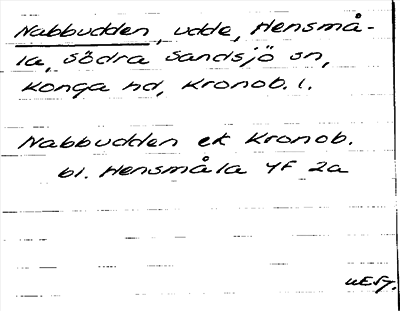 Nabbudden, udde, Hensmå-
la, Södra Sandsjö sn,
Konga hd, Kronob. l.
Nabbudden ek Kronob.
bl. Hensmåla 4F 2a